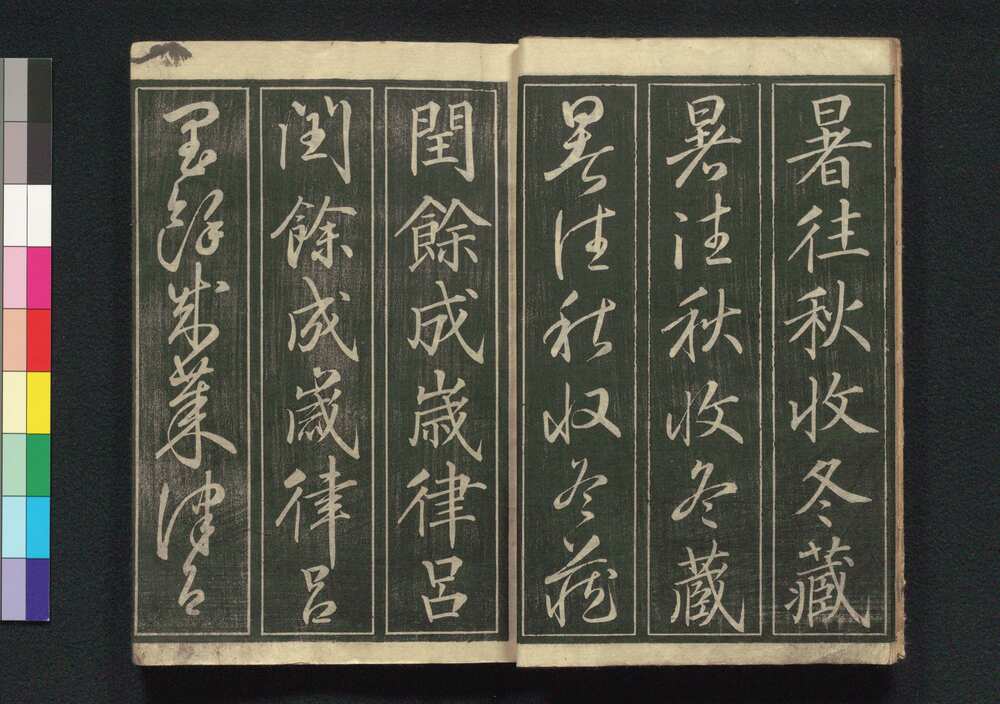 暑往秋收冬藏
暑往秋收冬藏
暑往秋收冬藏
閏餘成歳律呂
閏餘成歳律呂
閏餘成歳律呂